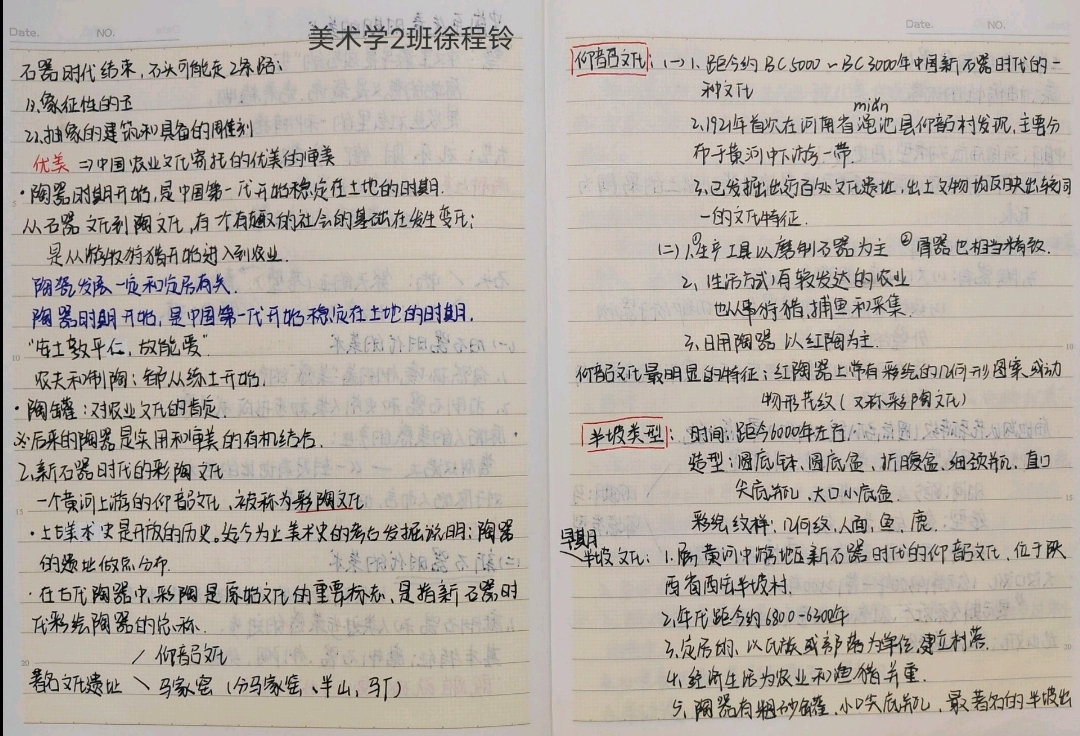 Date.
NO.
美术学2班徐程铃
石器时代结束，石头可能走2条路：
1).象征性的玉
2).抽象的建筑和具备的雕刻
优美 ⇒中国农业文化寄托的优美的审美
·陶器时期开始，是中国第一代开始稳定在土地的时期.
从石器文化到陶文化，有个有趣的社会的基础在发生变化；
是从游牧狩猎开始进入到农业.
陶瓷发展一定和定居有关.
陶器时期开始，是中国第一代开始稳定在土地的时期.
"安土敦乎仁，故能爱"
农夫和制陶：都从练土开始.
·陶罐：对农业文化的肯定
※后来的陶器是实用和审美的有机结合.
2.新石器时代的彩陶文化
一个黄河上游的仰韶文化，被称为彩陶文化
·上古美术史是开放的历史。迄今为止美术史的考古发掘说明：陶器
的遗址做点分布.
·在古代陶器中，彩陶是原始文化的重要标志，是指新石器时
代彩绘陶器的总称.
/ 仰韶文化
著名文化遗址 \ 马家窑（分马家窑、半山、马厂）
Date.
NO.
仰韶文化：(一) 1. 距今约BC5000～BC3000年中国新石器时代的一
种文化
mián
2.1921年首次在河南省渑池县仰韶村发现，主要分
布于黄河中下游一带.
3.已发掘出近百处文化遗址，出土文物均反映出较同
一的文化特征.
(二) 1.①生产工具以磨制石器为主 ②骨器也相当精致.
2.（生活方式）有较发达的农业
也从事狩猎，捕鱼和采集.
3.日用陶器 以红陶为主
仰韶文化最明显的特征：红陶器上带有彩绘的几何形图案或动
物形花纹（又称彩陶文化）
半坡类型：时间：距今6000年左右
造型：圆底钵、圆底盆、折腹盆、细颈瓶、直口
尖底瓶、大口小底盆.
彩绘纹样：几何纹、人面、鱼、鹿.
早期
半坡文化：1.属黄河中游地区新石器时代的仰韶文化，位于陕
西省西安半坡村.
2.年代距今约6800-6300年
3.定居的，以氏族或部落为单位，建立村落.
4.经济生活为农业和渔猎并重.
5.陶器有粗砂罐、小口尖底瓶，最著名的半坡出